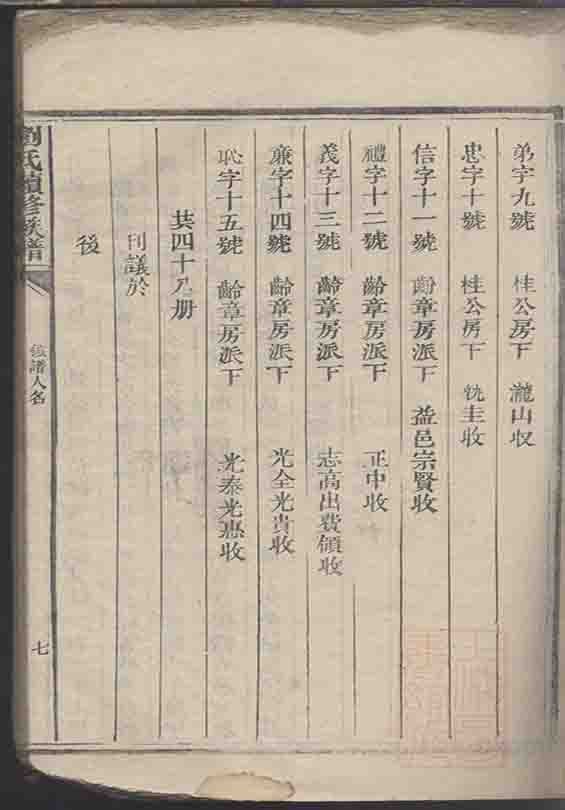 弟字九號 桂公房下 瀧山收
忠字十號 桂公房下 執圭收
信字十一號 齡章房派下 益邑宗賢收
禮字十二號 齡章房派下 正中收
義字十三號 齡章房派下 志高出費領收
廉字十四號 齡章房派下 光全光貴收
恥字十五號 齡章房派下 光泰光惠收
共四十八册
刊議於
後
劉氏續修族譜 領譜人名 七